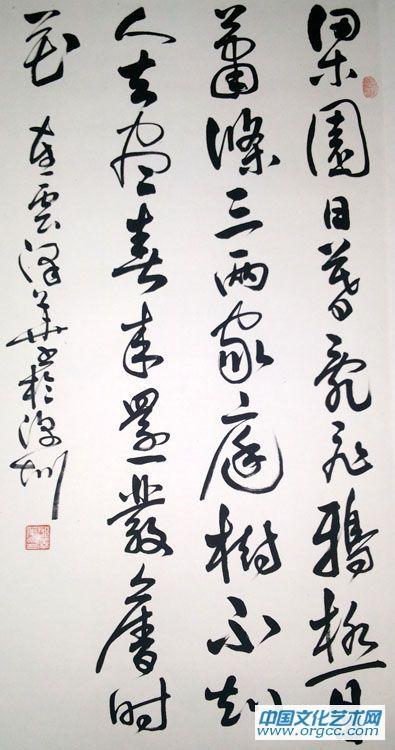 梁園日暮亂飛鴉極目
蕭條三兩家庭樹不知
人去盡春來還發舊時
花 雲澤華書於深圳
中国文化艺术网
www.orgcc.com